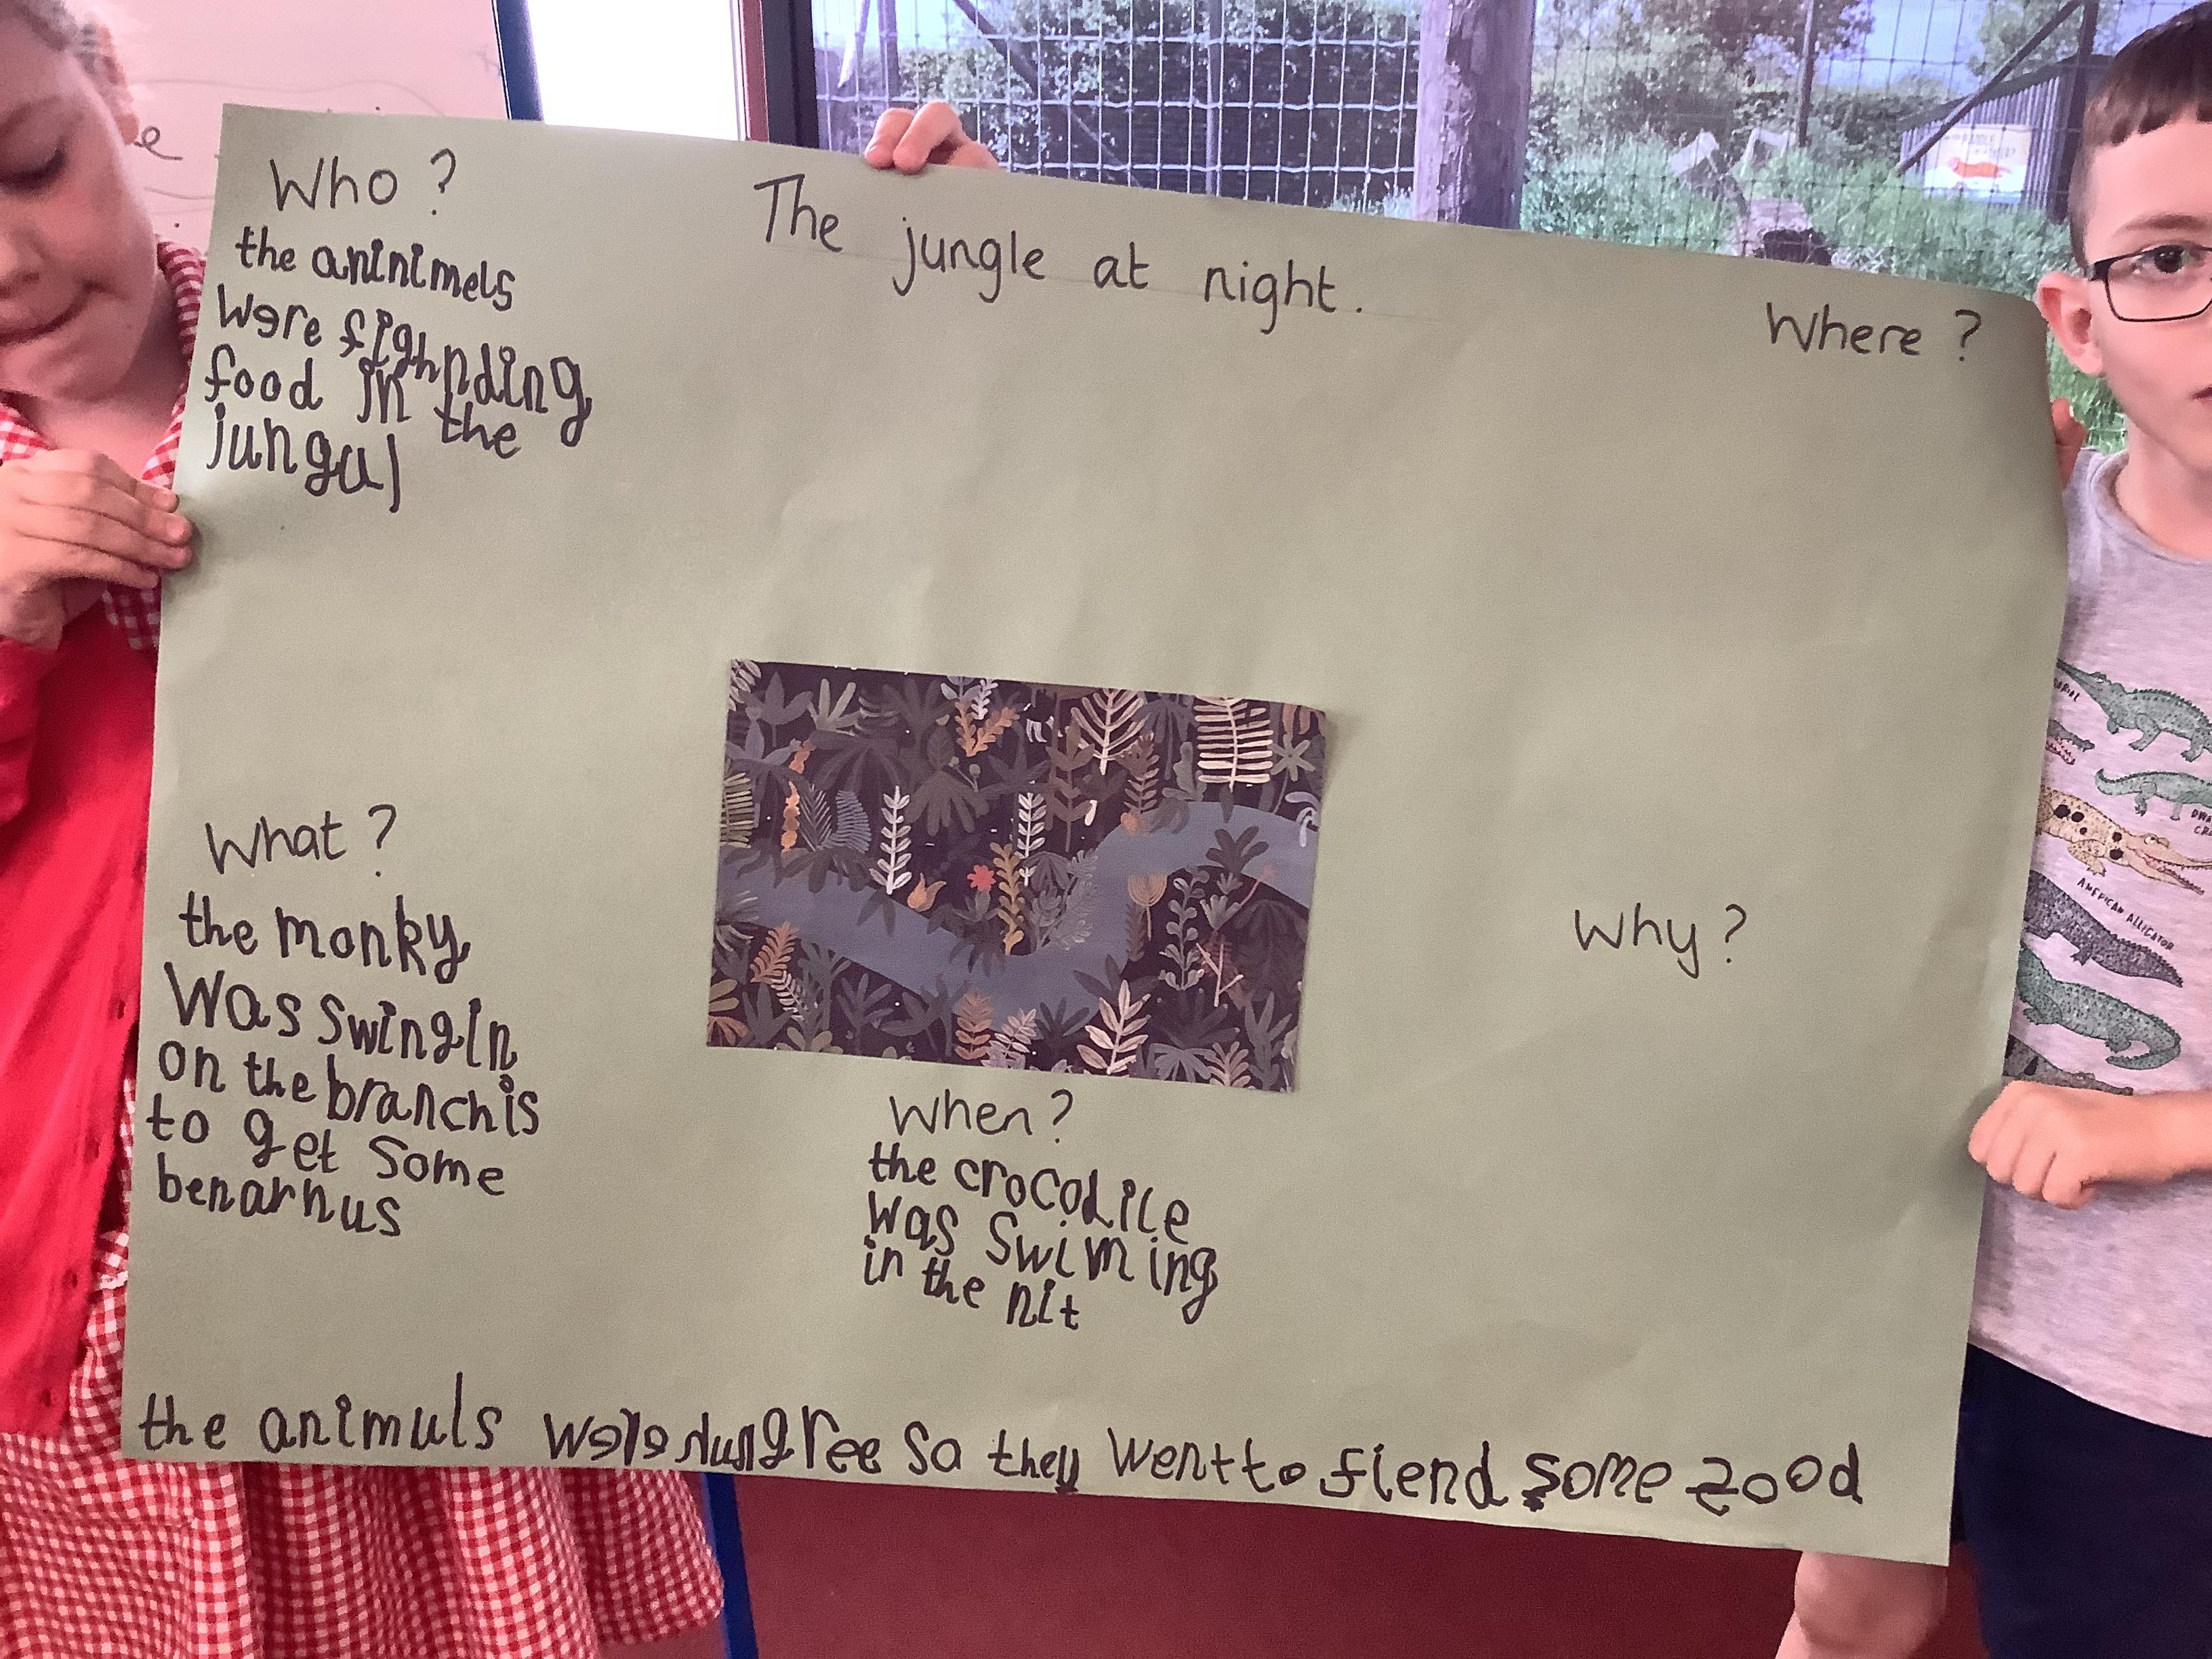 The jungle at night.
Who?
the aninimels
were fighnding
food in the
jungul
Where?
What?
the monky
was swingin
on the branchis
to get some
benarnus
Why?
When?
the crocodile
was swiming
in the nit
the animuls were hungree so they went to fiend some food
AMERICAN ALLIGATOR